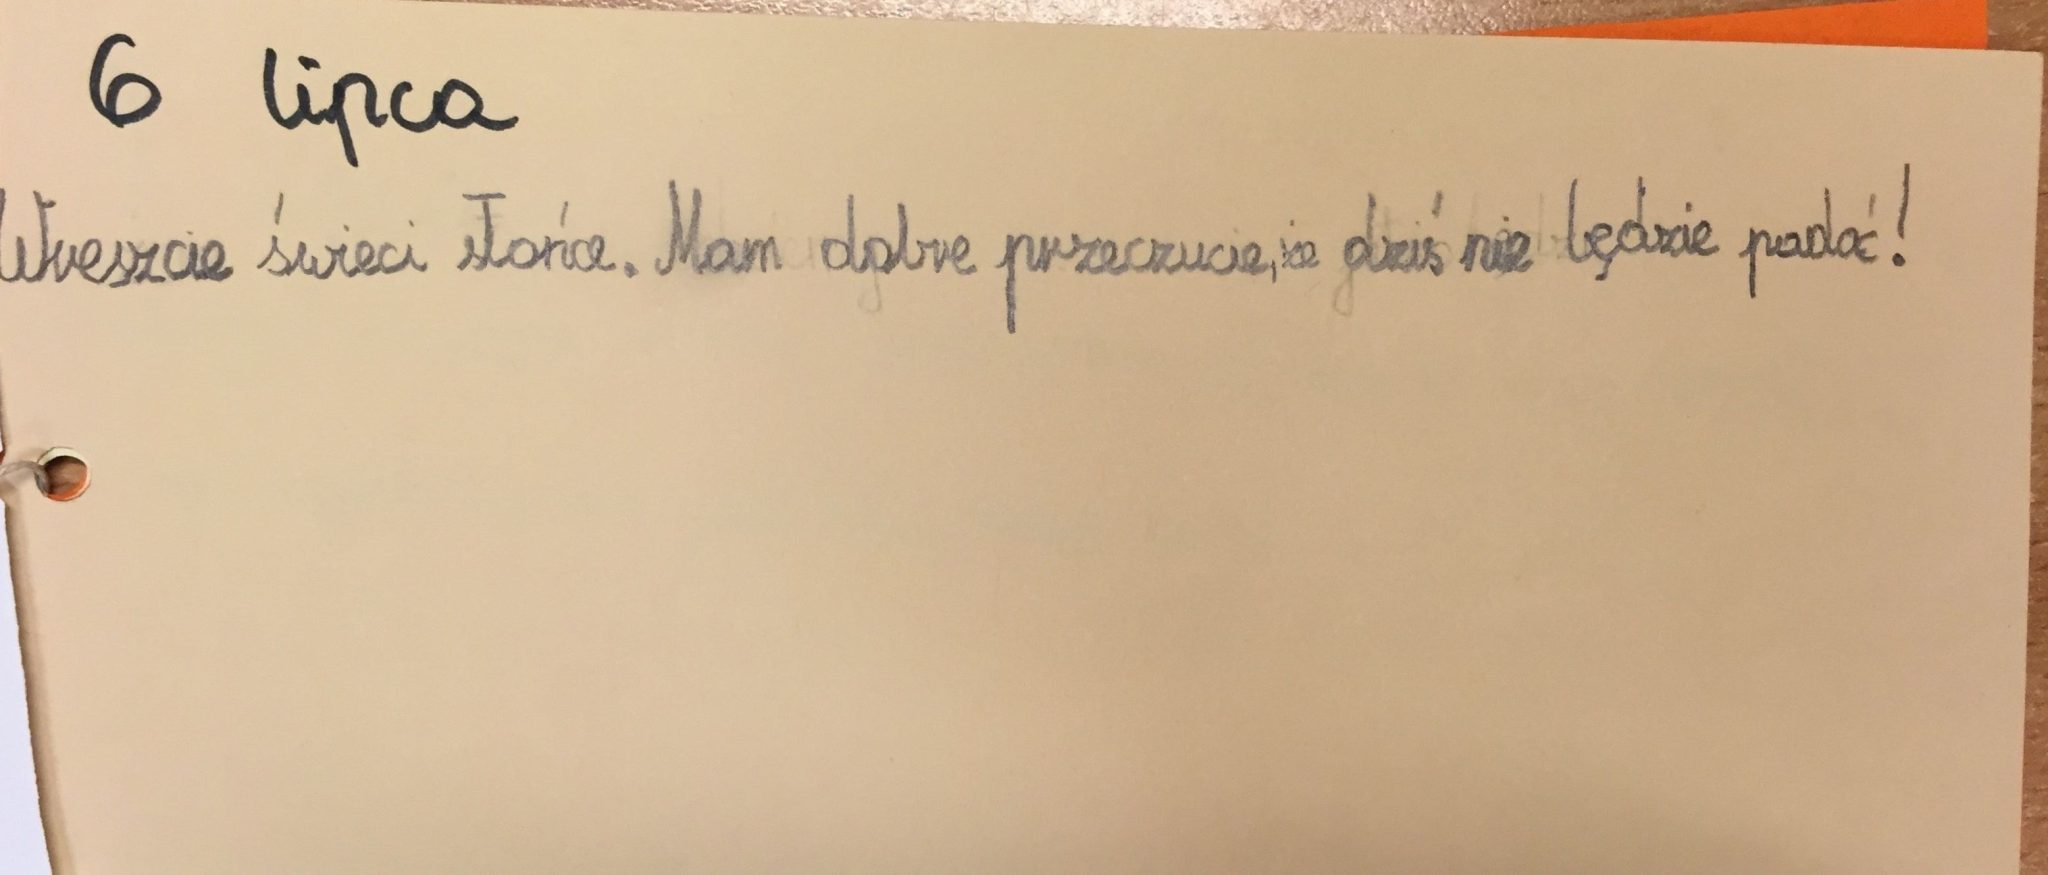 6 lipca
Wreszcie świeci słońce. Mam dobre przeczucie, że dziś nie będzie padać!